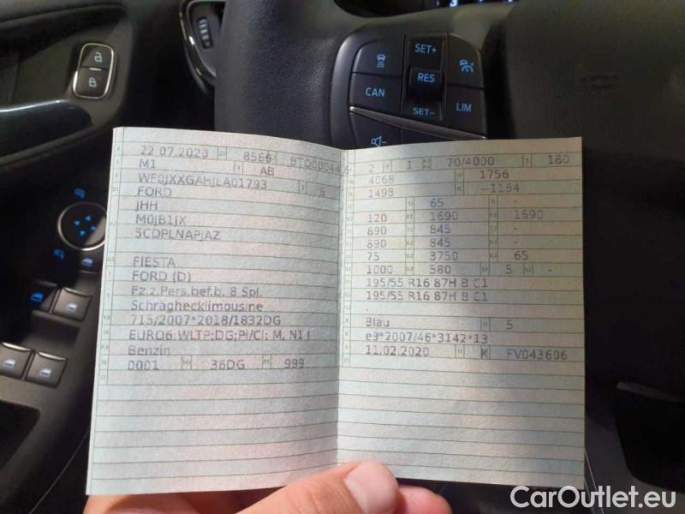 SET+
RES
CAN
SET-
LIM
22.07.2020 8566
M1 AB
FORD
JHH
M0JB1JX
5CDPLNAPJAZ
FIESTA
FORD (D)
Fz.z.Pers.bef.b. 8 Spl.
Schräghecklimousine
715/2007*2018/1832DG
EURO6;WLTP;DG;PI/CI; M, N1 I
Benzin
0001 36DG 999
2 1 70/4000 160
4068 1756
1499
65
120 1590 1590
890 845 -
690 845 -
75 3750 65
1000 580 5 -
195/55 R16 87H B C1
195/55 R16 87H B C1
Blau 5
e9*2007/46*3142*13
11.02.2020 K FV043606
CarOutlet.eu